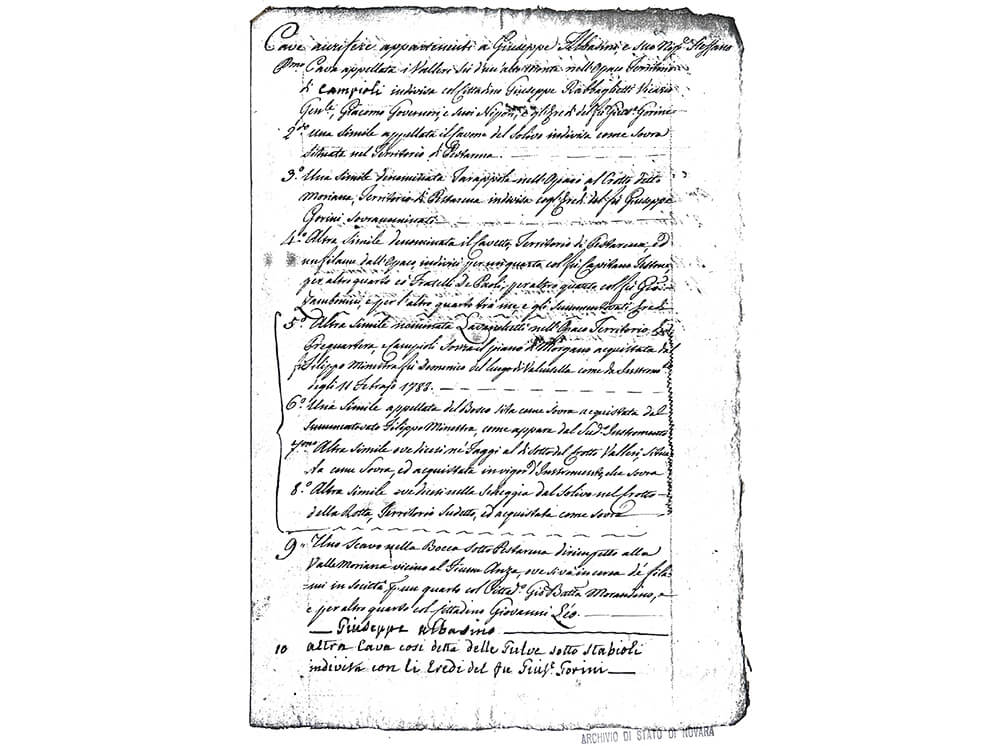 Cave aurifere appartenenti a Giuseppe Albasini, e suo Nip.e Steffano
P.mo Cava appellata i Valleri nell'Opaco Territorio
di Campioli indivisa col Cittadino Giuseppe Rabbaglietti Vicario
Gen.le, Giacomo Governori, e suoi Nipoti, e gl'Eredi del fu Gius.e Gorini
2.do una simile appellata il Cavone del Solivo indivisa come sovra
situata nel Territorio di Pestarena
3.o Una simile denominata nell'Opaco al Crotto detto
Moriana, Territorio di Pestarena indivisa cogl'Eredi del fu Giuseppe
Gorini sovranominati
4.o Altra simile denominata il Cavetto, Territorio di Pestarena ed
un filone dall'Opaco, indivisi per un quarto col fu Capitano Testone
per altro quarto co' Fratelli De Paoli, per altro quarto col fu Gio.
Jambonini, e per l'altro quarto tra me e gli summentovati Eredi
5.o Altra simile nominata nell'Opaco Territorio
Prequartera, e Campioli sovra il piano di Morgano acquistata dal
Filippo Minestra fu Domenico del luogo di come da Instrom.to
degli 11 Febrajo 1788.
6.o Una simile appellata del Bosco sita come sovra acquistata dal
summentovato Filippo Minestra, come appare dal Sud.o Instromento
7.mo Altra simile ove dicesi ne' Faggi al di sotto del Crotto Valleri, situa-
ta come sovra, ed acquistata in vigor d'Instromento, che sovra
8.o Altra simile ove dicesi nella Scheggia dal Solivo nel Crotto
della Rotta, Territorio sudetto, ed acquistata come sovra
9.o Uno scavo nella Bocca sotto Pestarena dirimpetto alla
Valle Moriana vicino al Fiume Anza, ove si va in cerca de' filo-
ni in società p. un quarto col Cittad.o Gio Batta Morandino,
e per altro quarto col Cittadino Giovanni Léo.
Giuseppe Albasino
10 altra Cava così detta delle Fulve sotto Stabioli
indivisa con li Eredi del fu Giu.e Gorini
ARCHIVIO DI STATO DI NOVARA